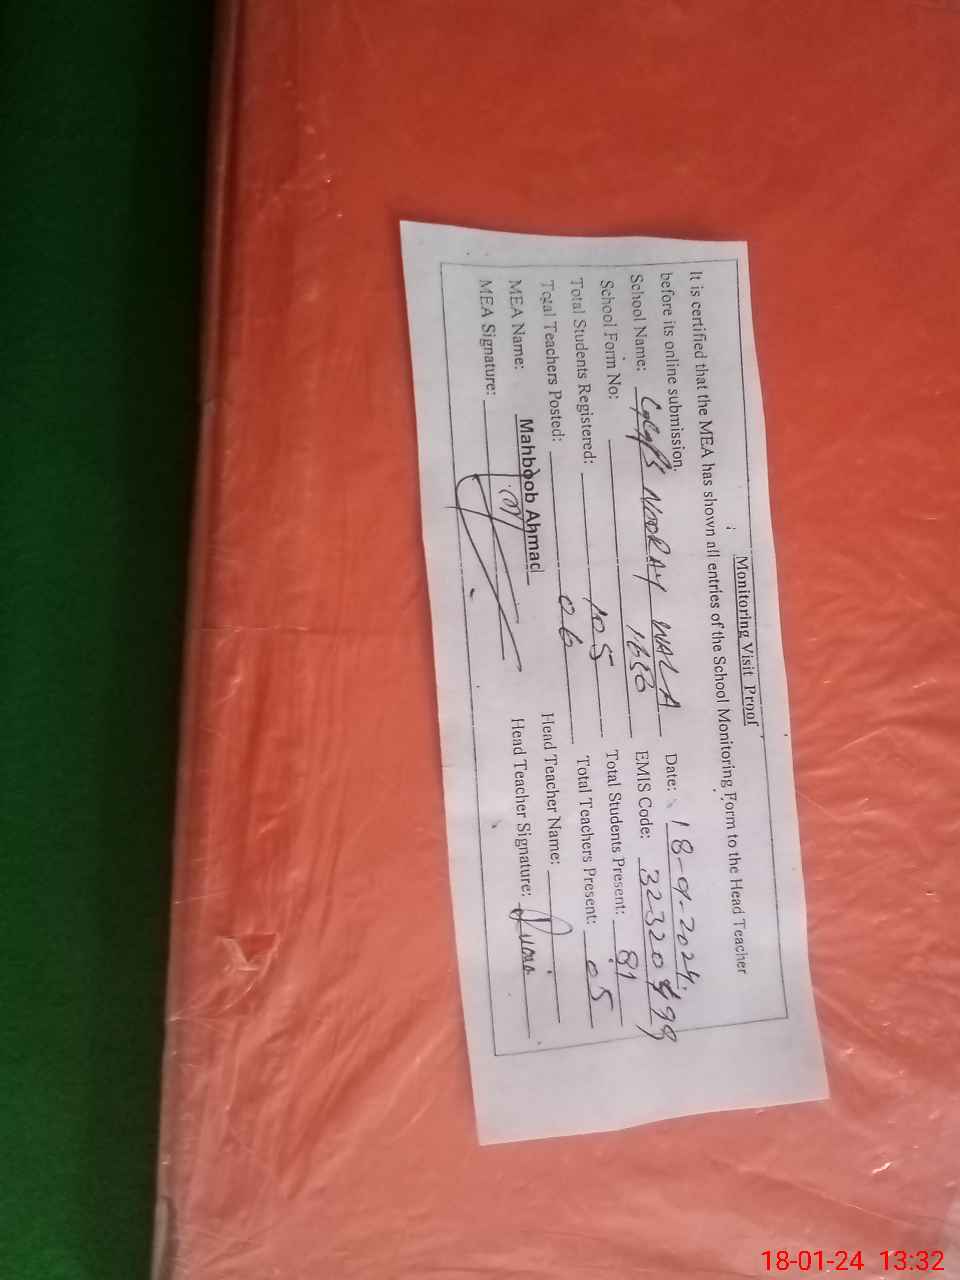 Monitoring Visit Proof
It is certified that the MEA has shown all entries of the School Monitoring Form to the Head Teacher
before its online submission.
School Name: NOORAY WALA Date: 18-01-2024.
School Form No: 1656 EMIS Code: 32320499
Total Students Registered: 105 Total Students Present: 81
Total Teachers Posted: 06 Total Teachers Present: 05
MEA Name: Mahboob Ahmad Head Teacher Name:
MEA Signature: Head Teacher Signature:
18-01-24 13:32